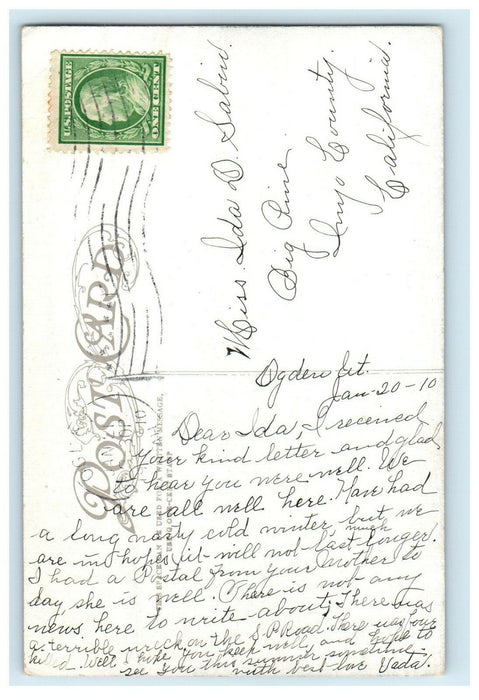 U.S. POSTAGE
ONE CENT
POST CARD
THIS SPACE MAY BE USED FOR WRITTEN MESSAGE,
USING ONE-CENT STAMP
Miss. Ida D. Sabin.
Big Pine
Inyo County.
California.
Ogden Ut.
Jan-20-10
Dear Ida, I received
your kind letter and glad
to hear you were well. We
are all well here. Have had
a long nasty cold winter, but we
are in hopes it will not last much longer.
I had a Postal From your mother to
day she is well. There is not any
news here to write about. There was
a terrible wreck on the S.P. Road. There was four
killed. Well I hope you keep well, and hope to
see you this summer sometime
with best love Vada.